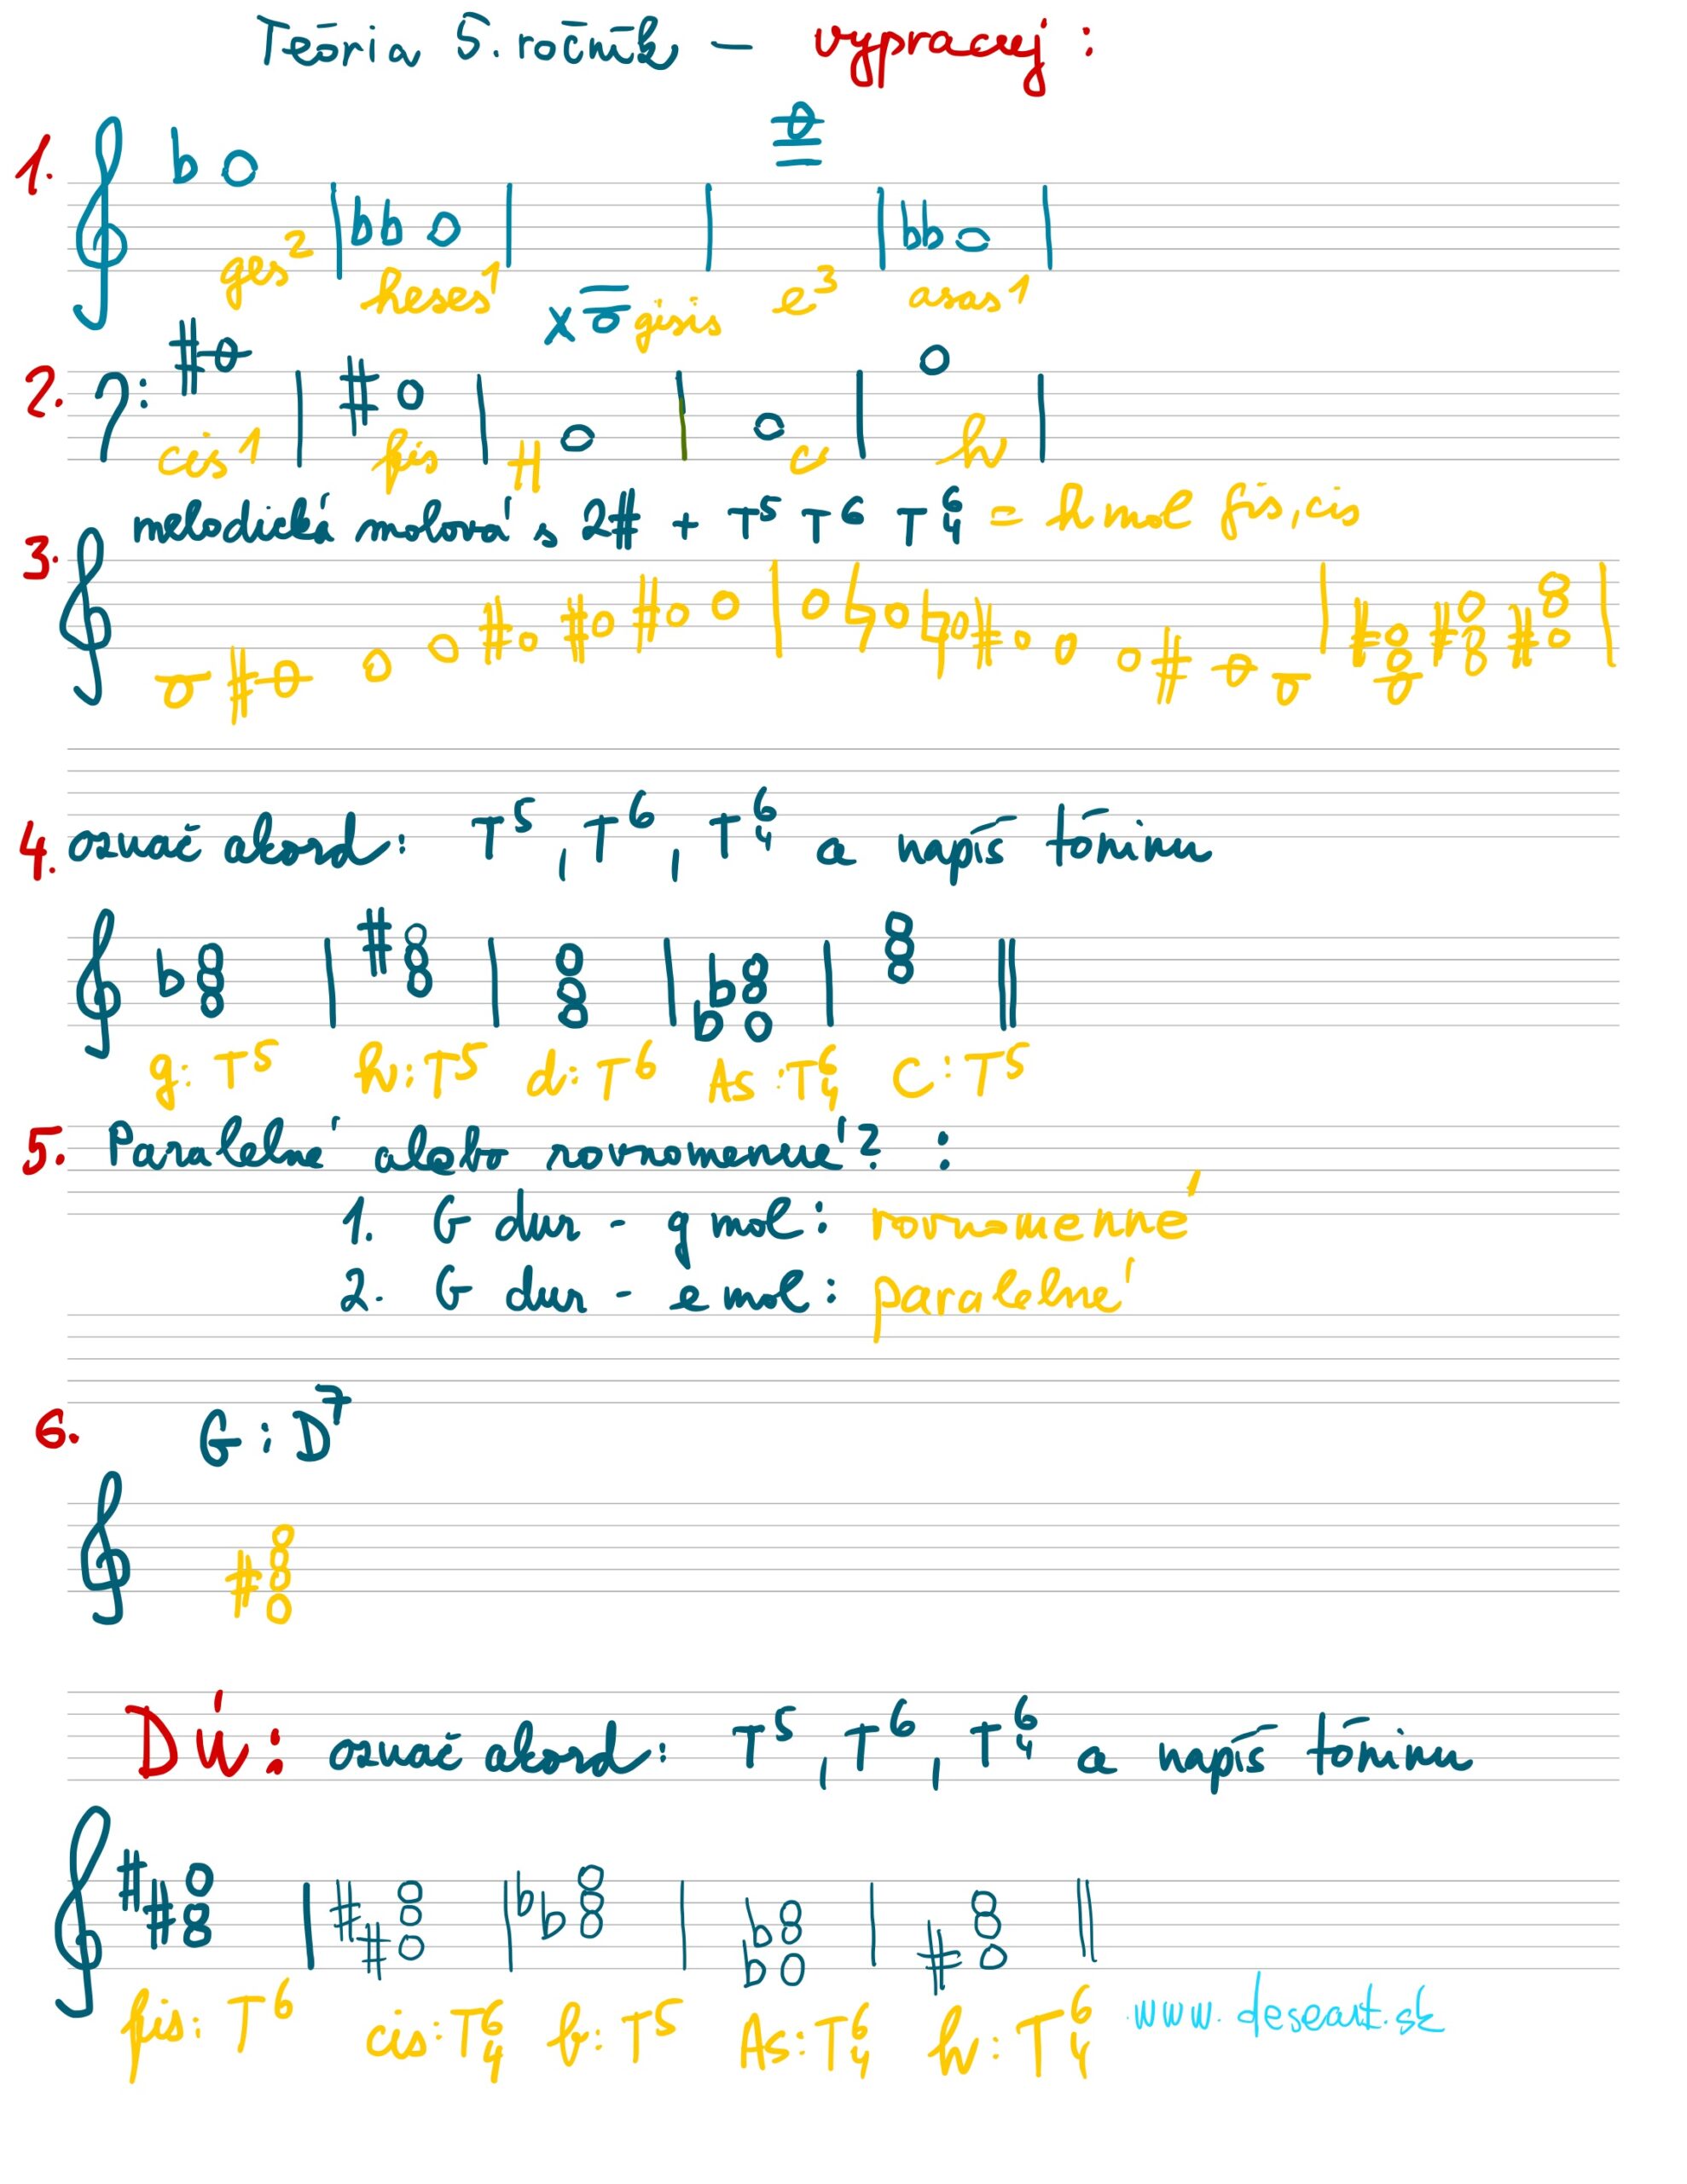 Teória 5. ročník – vypracuj:
1.
ges² heses¹ gisis e³ asas¹
2.
cis¹ fis H c h
melodická molová s 2# + T⁵ T⁶ T⁶₄ = h mol fis, cis
3.
4. označ akord: T⁵, T⁶, T⁶₄ a napíš tóninu
g: T⁵ h: T⁵ d: T⁶ As: T⁶₄ C: T⁵
5. Paralelné alebo rovnomenné? :
1. G dur - g mol: rovnomenné
2. G dur - e mol: paralelné
6. G: D⁷
DÚ: označ akord: T⁵, T⁶, T⁶₄ a napíš tóninu
fis: T⁶ cis: T⁶₄ f: T⁵ As: T⁶₄ h: T⁶₄ www.deseart.sk